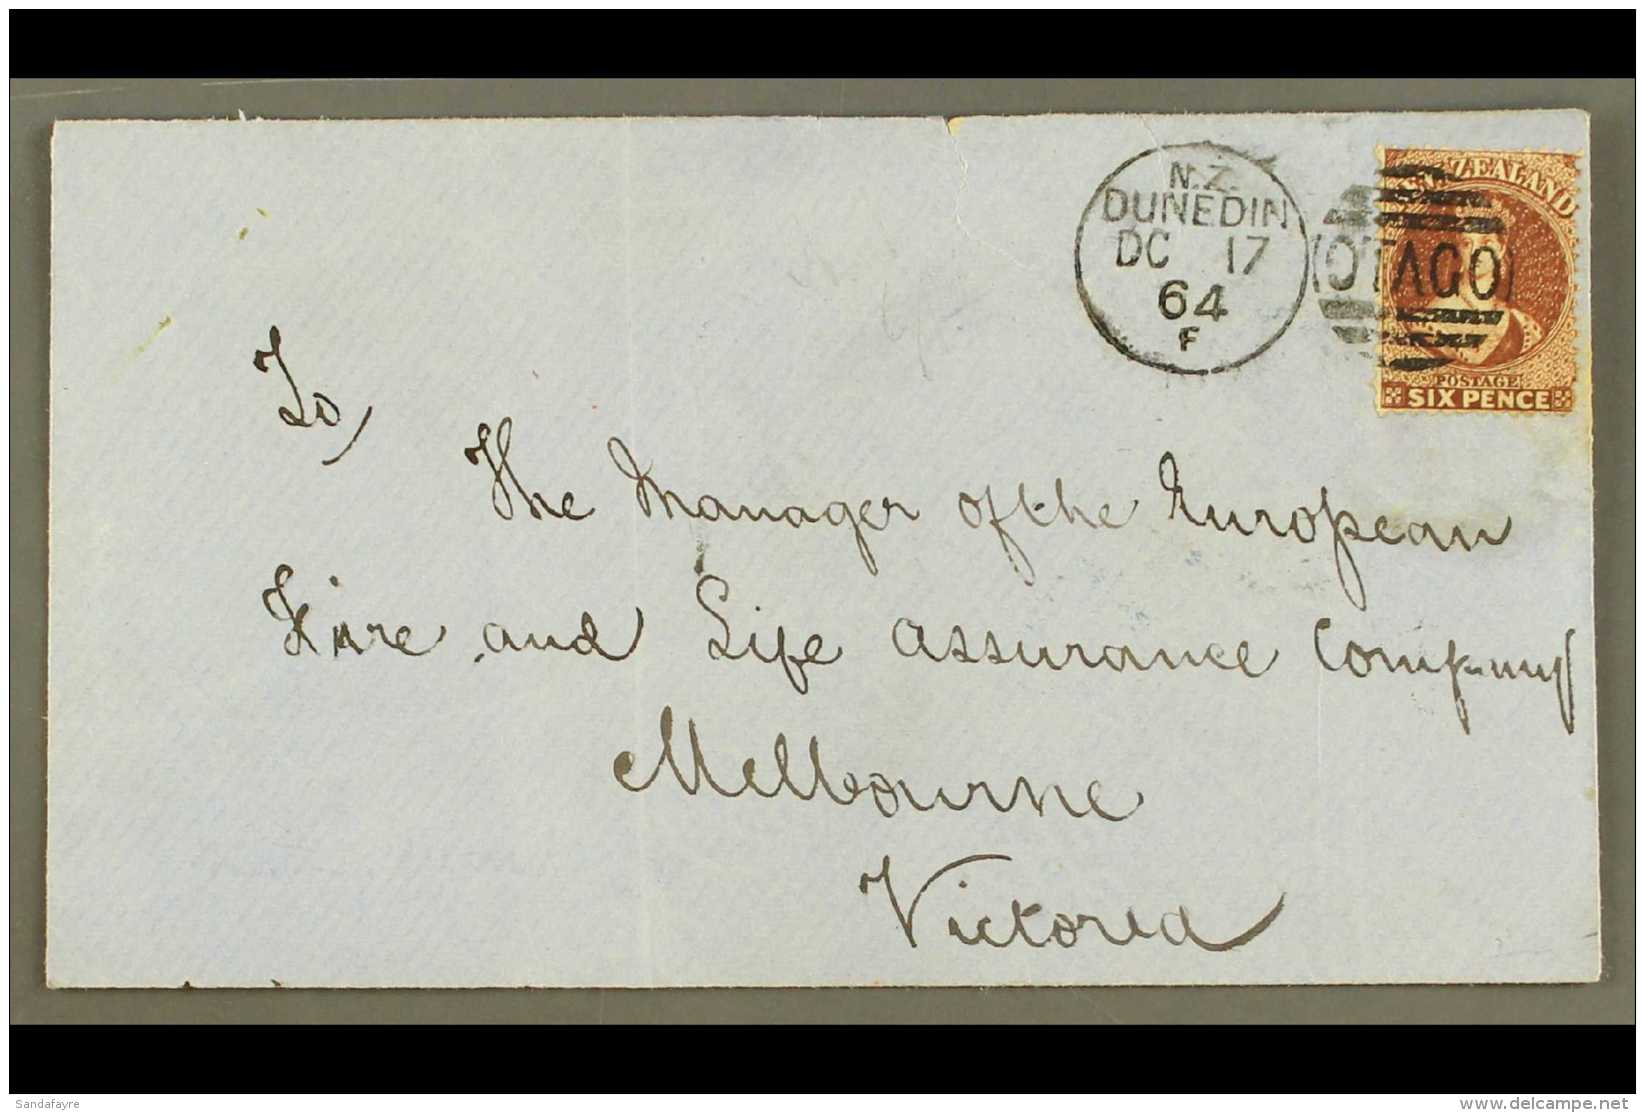 N.Z.
DUNEDIN
DC 17
64
F
OTAGO
N. ZEALAND
POSTAGE
SIX PENCE
To,
The Manager of the European
Fire and Life Assurance Company
Melbourne
Victoria
Sandafayre
delcampe.net